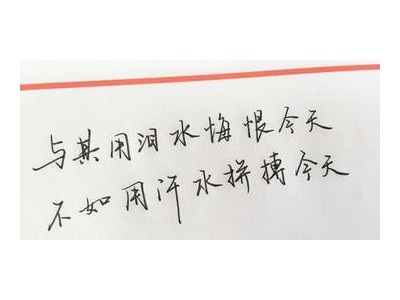 与其用泪水悔恨今天
不如用汗水拼搏今天